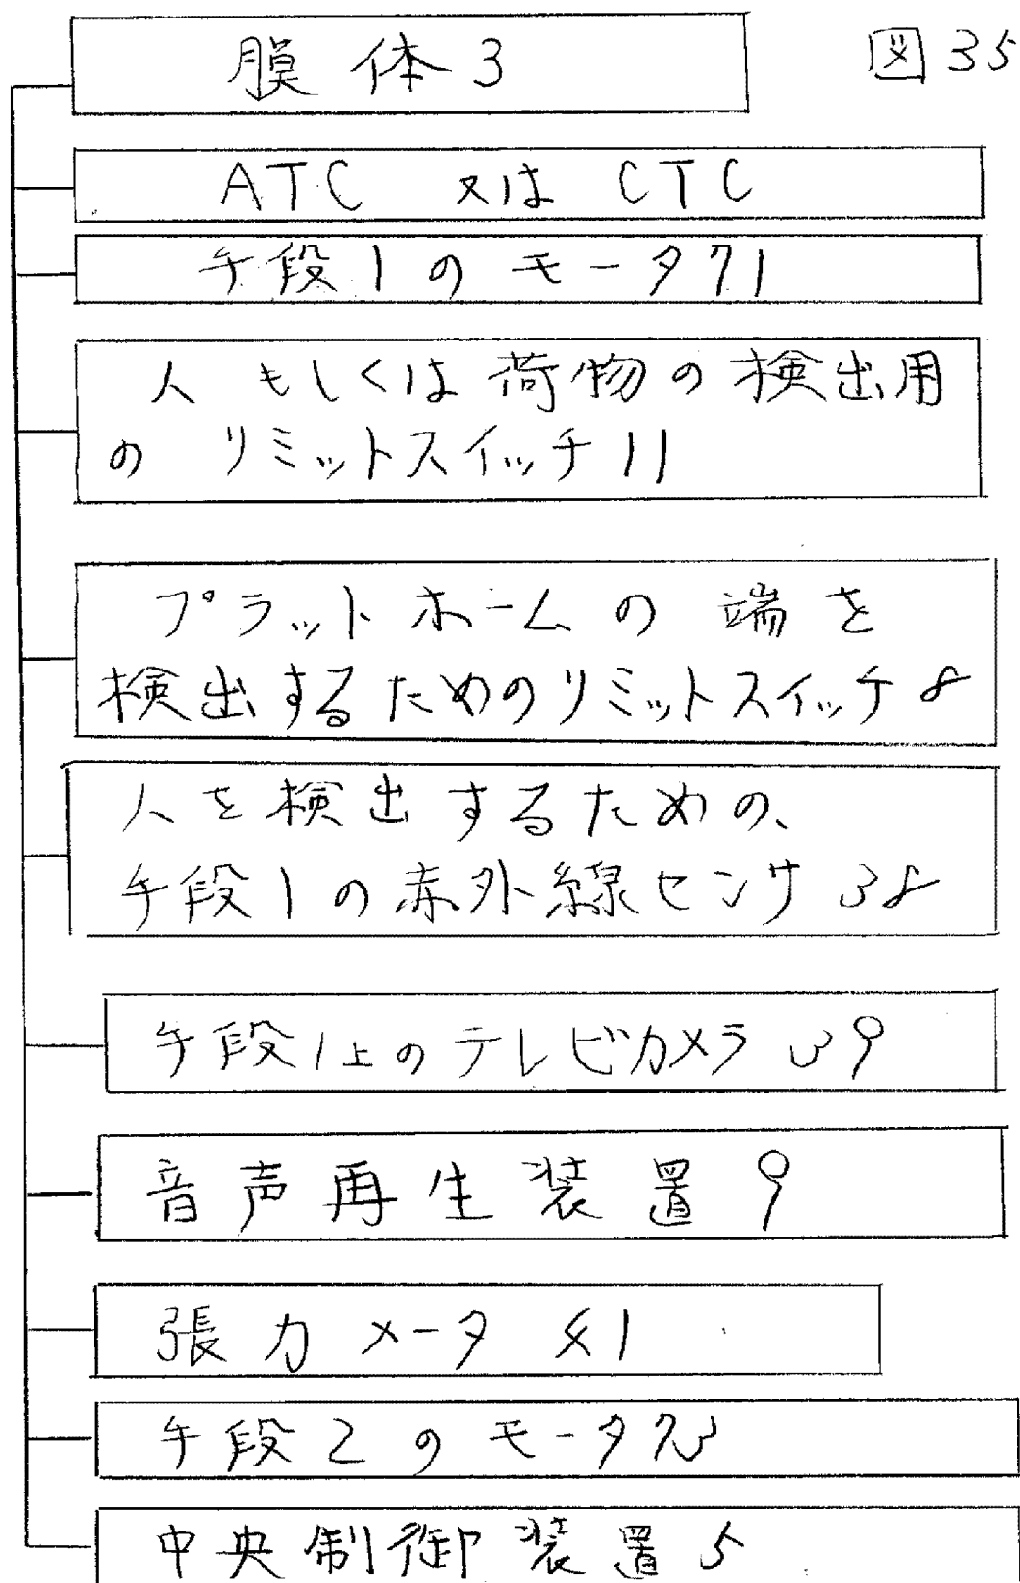 図35
膜体3
ATC 又は CTC
手段1のモータ71
人もしくは荷物の検出用
のリミットスイッチ11
プラットホームの端を
検出するためのリミットスイッチ8
人を検出するための、
手段1の赤外線センサ38
手段1上のテレビカメラ39
音声再生装置9
張力メータ41
手段2のモータ73
中央制御装置5